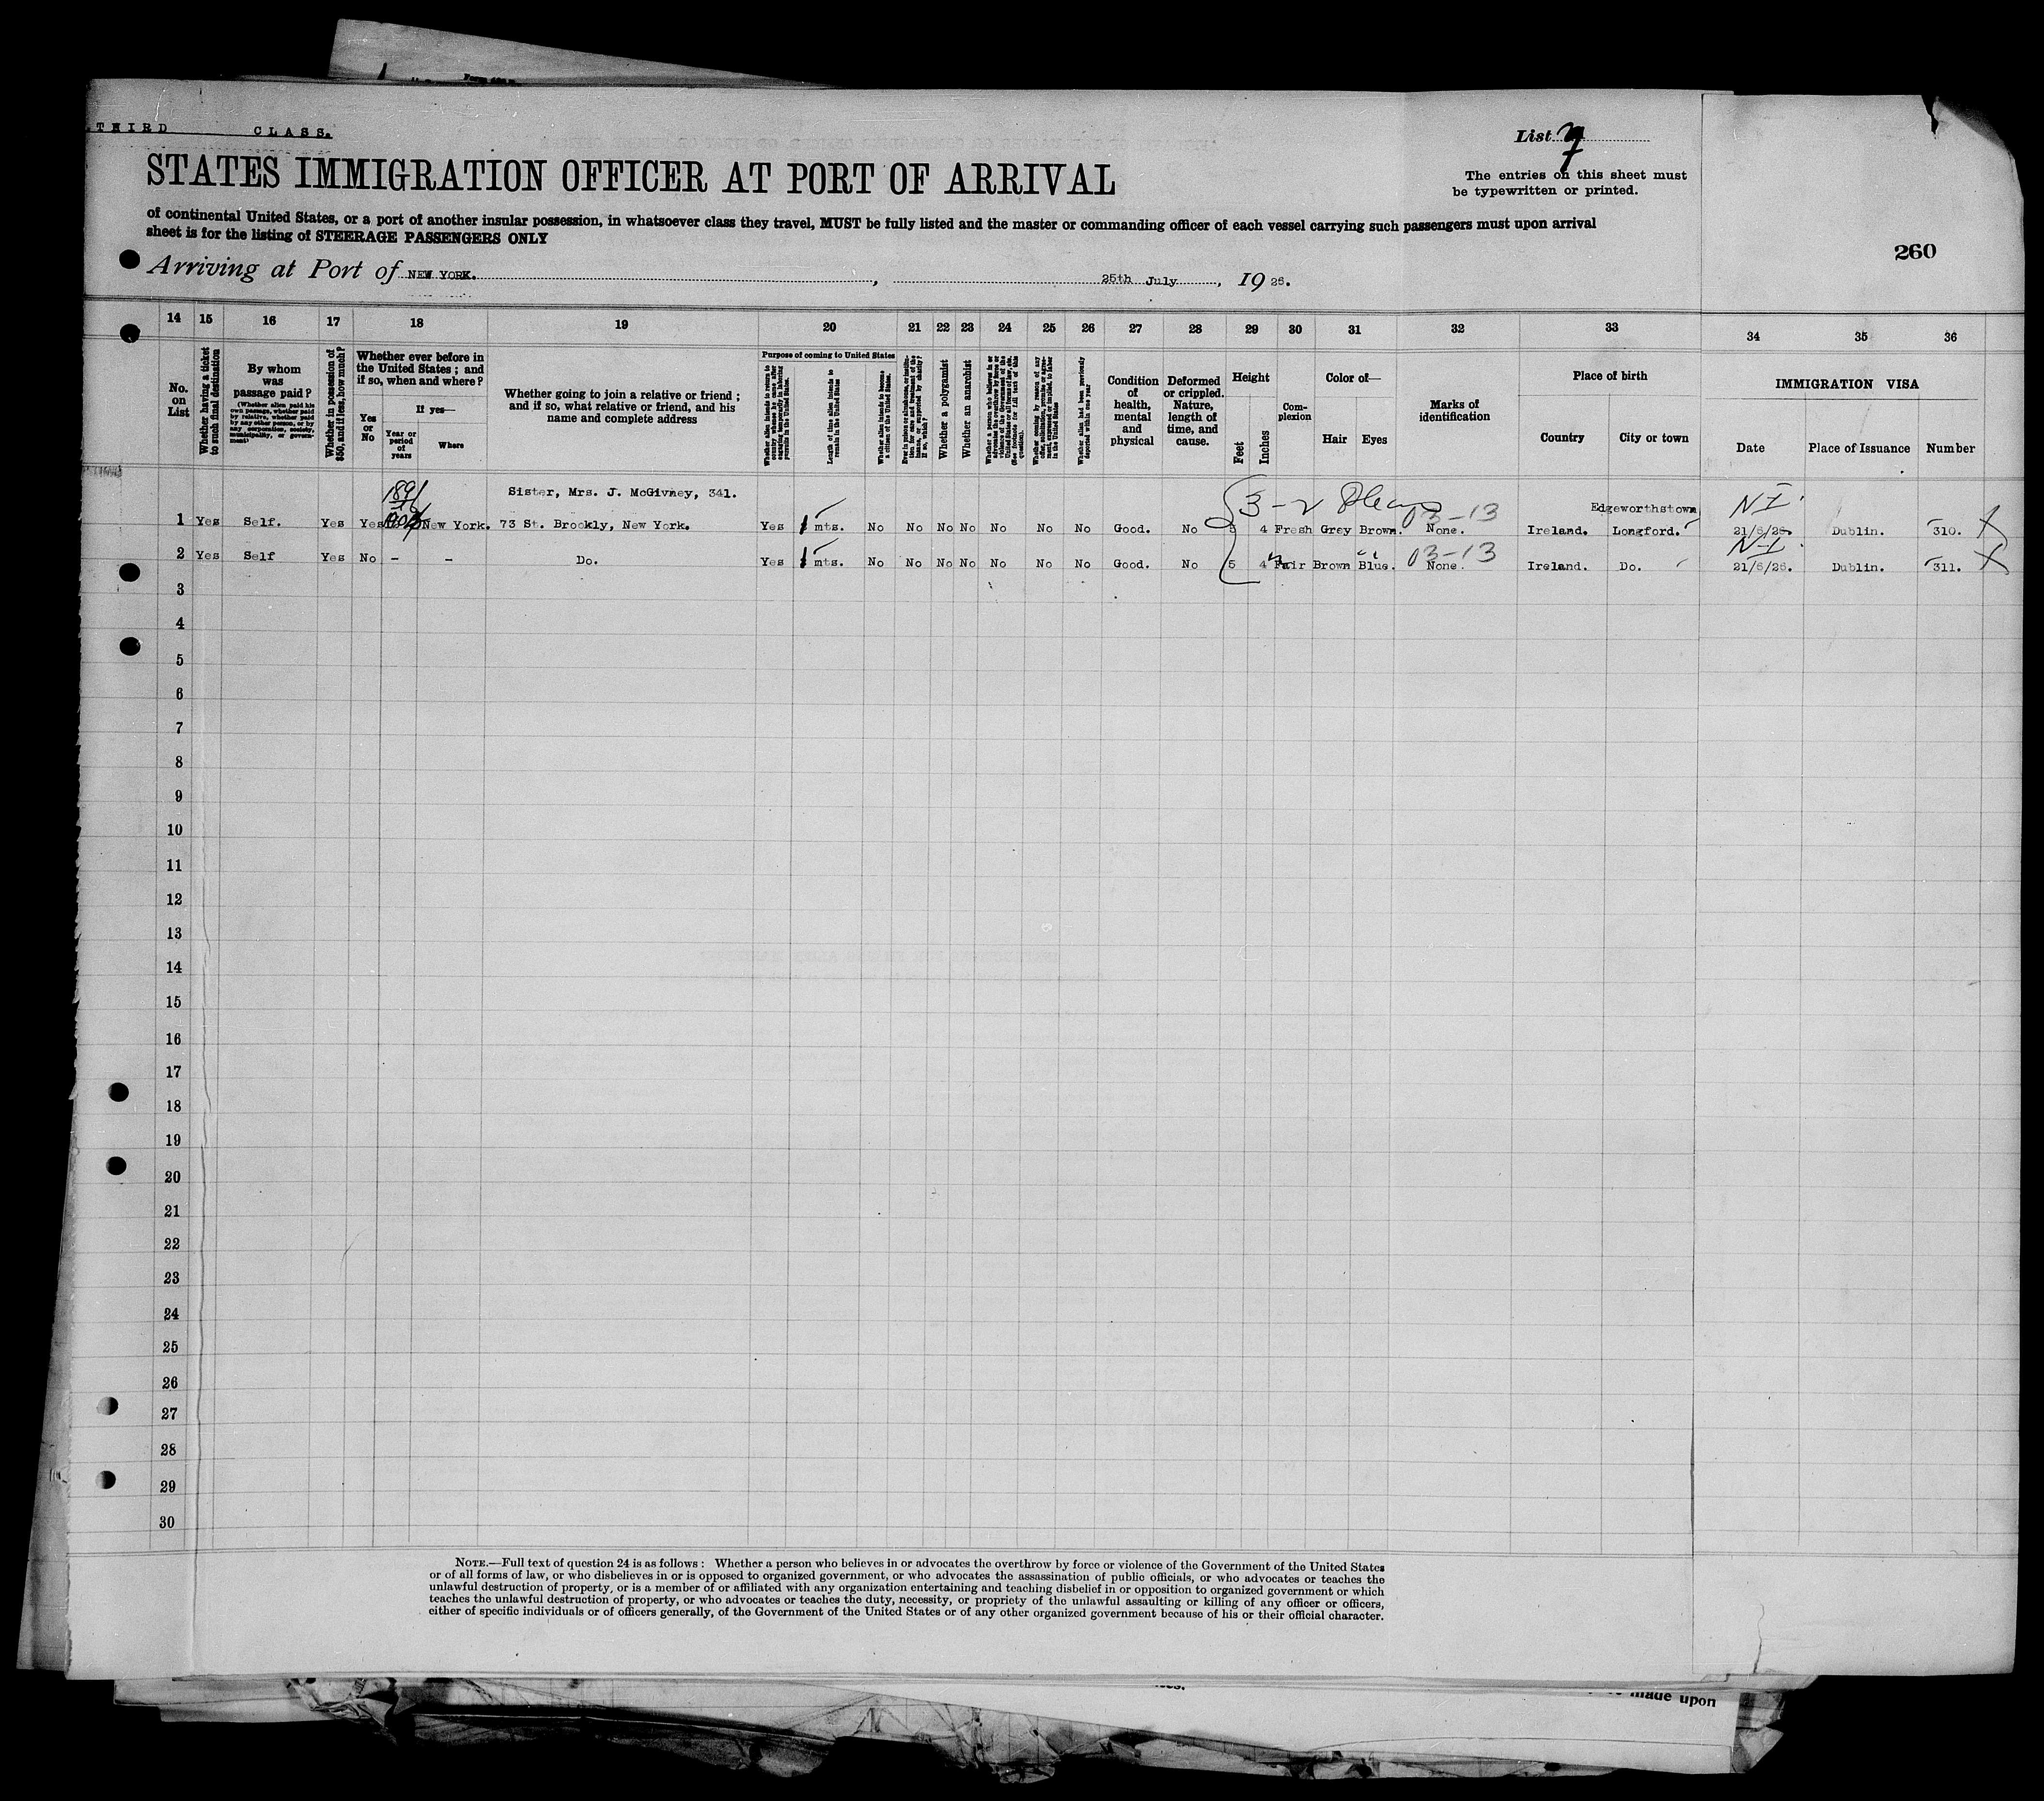 THIRD CLASS.
List 7
STATES IMMIGRATION OFFICER AT PORT OF ARRIVAL
The entries on this sheet must
be typewritten or printed.
of continental United States, or a port of another insular possession, in whatsoever class they travel, MUST be fully listed and the master or commanding officer of each vessel carrying such passengers must upon arrival
sheet is for the listing of STEERAGE PASSENGERS ONLY
260
Arriving at Port of NEW YORK. , 25th July , 1926.
14 15 16 17 18 19 20 21 22 23 24 25 26 27 28 29 30 31 32 33 34 35 36
No. on List
Whether having a ticket to such final destination
By whom was passage paid?
(Whether alien paid his own passage, whether paid by relative, whether paid by any other person, or by any corporation, society, municipality, or government)
Whether in possession of $50, and if less, how much?
Whether ever before in the United States; and if so, when and where?
Yes or No
If yes—
Year or period of years
Where
Whether going to join a relative or friend; and if so, what relative or friend, and his name and complete address
Purpose of coming to United States
Whether alien intends to return to country whence he came after engaging temporarily in laboring pursuits in the United States.
Length of time alien intends to remain in the United States
Whether alien intends to become a citizen of the United States.
Ever in prison or almshouse, or institution for care and treatment of the insane, or supported by charity? If so, which?
Whether a polygamist
Whether an anarchist
Whether a person who believes in or advocates the overthrow by force or violence of the Government of the United States or all forms of law, etc. (See footnote for full text of this question).
Whether coming by reason of any offer, solicitation, promise or agreement, expressed or implied, to labor in the United States
Whether alien had been previously deported within one year
Condition of health, mental and physical
Deformed or crippled. Nature, length of time, and cause.
Height
Feet
Inches
Complexion
Color of—
Hair
Eyes
Marks of identification
Place of birth
Country
City or town
IMMIGRATION VISA
Date
Place of Issuance
Number
1891
Sister, Mrs. J. McGivney, 341.
3-2
03-13
Edgeworthstown
NI
1 Yes Self. Yes Yes New York. 73 St. Brookly, New York. Yes 1 mts. No No No No No No No Good. No 5 4 Fresh Grey Brown. None. Ireland. Longford. 21/6/26. Dublin. 310. X
03-13
NI
2 Yes Self Yes No - - Do. Yes 1 mts. No No No No No No No Good. No 5 4 Fair Brown Blue. None. Ireland. Do. 21/6/26. Dublin. 311. X
3
4
5
6
7
8
9
10
11
12
13
14
15
16
17
18
19
20
21
22
23
24
25
26
27
28
29
30
NOTE.—Full text of question 24 is as follows: Whether a person who believes in or advocates the overthrow by force or violence of the Government of the United States
or of all forms of law, or who disbelieves in or is opposed to organized government, or who advocates the assassination of public officials, or who advocates or teaches the
unlawful destruction of property, or is a member of or affiliated with any organization entertaining and teaching disbelief in or opposition to organized government or which
teaches the unlawful destruction of property, or who advocates or teaches the duty, necessity, or propriety of the unlawful assaulting or killing of any officer or officers,
either of specific individuals or of officers generally, of the Government of the United States or of any other organized government because of his or their official character.
made upon